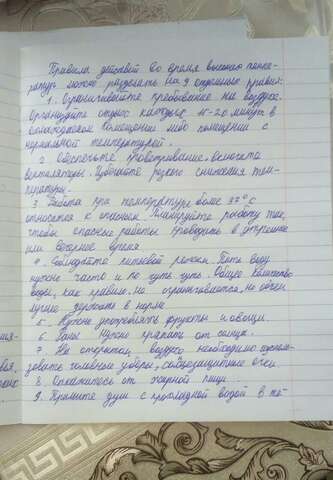 Правила действий во время высоких темпе-
ратур можно разделить на 9 отдельных правил:
1. Ограничивайте пребывание на воздухе.
Организуйте отдых каждые 15-20 минут в
охлаждаемом помещении либо помещении с
нормальной температурой.
2. Обеспечьте проветривание. Включите
вентиляторы. Избегайте резкого снижения тем-
пературы.
3. Работа при температуре более 32°С
относится к опасным. Планируйте работу так,
чтобы опасные работы проводить в утреннее
или вечернее время.
4. Соблюдайте питьевой режим. Пить воду
нужно часто и по чуть-чуть. Общее количество
воды, как правило, не ограничивается, но
лучше держать в норме.
5. Нужно употреблять фрукты и овощи.
6. Глаза нужно прятать от солнца.
7. На открытом воздухе необходимо
головные уборы, солнцезащитные очки
8. Откажитесь от жирной пищи.
9. Примите душ с прохладной водой в те-